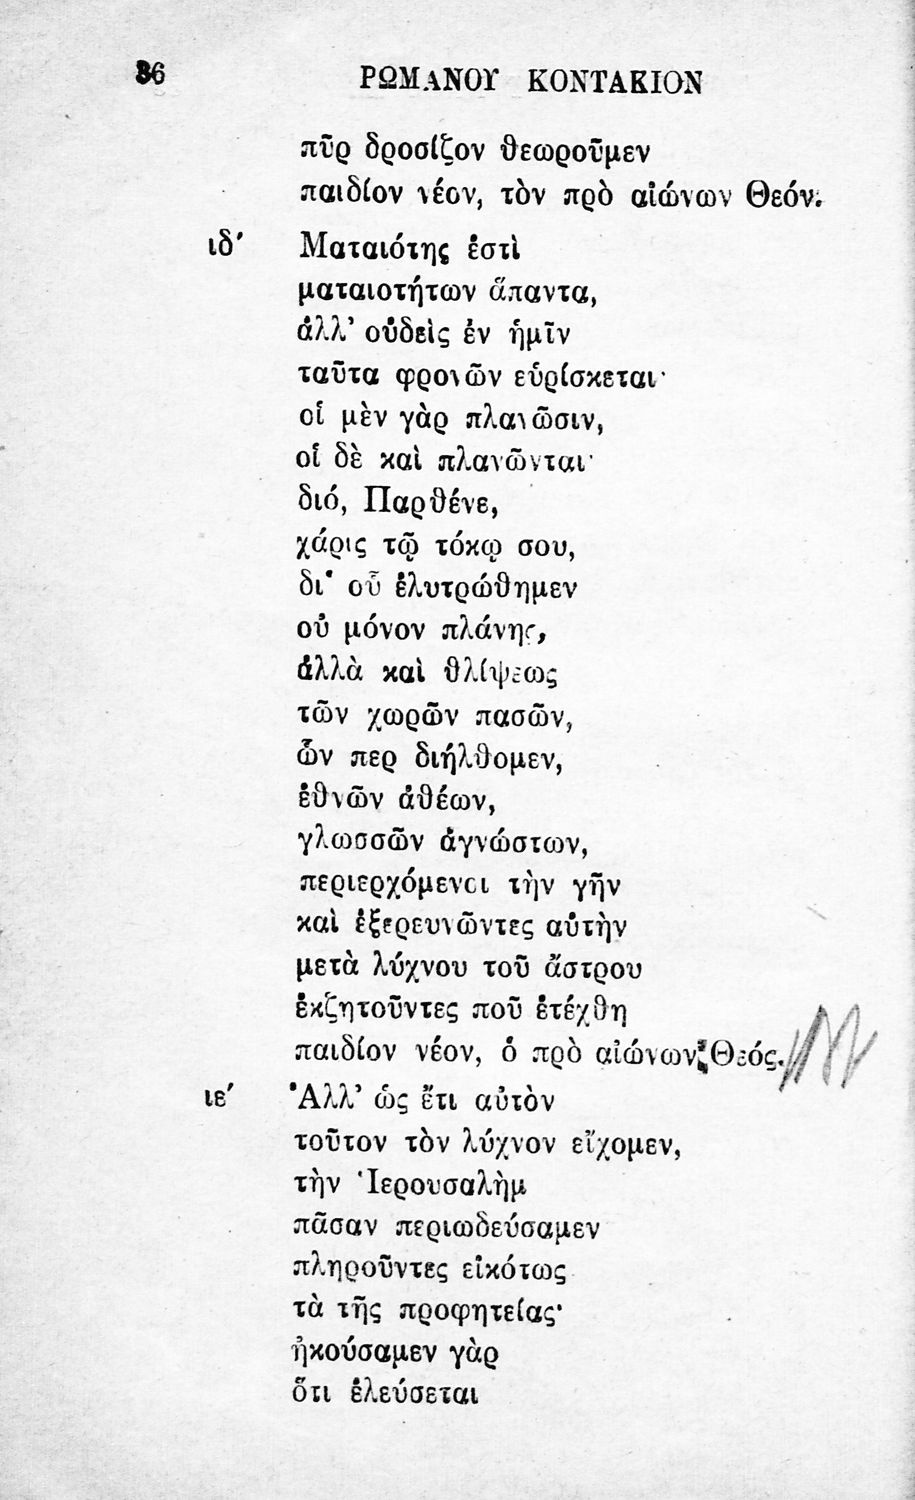 36 ΡΩΜΑΝΟΥ ΚΟΝΤΑΚΙΟΝ
πῦρ δροσίζον θεωροῦμεν
παιδίον νέον, τὸν πρὸ αἰώνων Θεόν.
ιδ′ Ματαιότης ἐστὶ
ματαιοτήτων ἅπαντα,
ἀλλ’ οὐδεὶς ἐν ἡμῖν
ταῦτα φρονῶν εὑρίσκεται·
οἱ μὲν γὰρ πλανῶσιν,
οἱ δὲ καὶ πλανῶνται·
διό, Παρθένε,
χάρις τῷ τόκῳ σου,
δι’ οὗ ἐλυτρώθημεν
οὐ μόνον πλάνης,
ἀλλὰ καὶ θλίψεως
τῶν χωρῶν πασῶν,
ὧν περ διήλθομεν,
ἐθνῶν ἀθέων,
γλωσσῶν ἀγνώστων,
περιερχόμενοι τὴν γῆν
καὶ ἐξερευνῶντες αὐτὴν
μετὰ λύχνου τοῦ ἄστρου
ἐκζητοῦντες ποῦ ἐτέχθη
παιδίον νέον, ὁ πρὸ αἰώνων Θεός.
ιε′ Ἀλλ’ ὡς ἔτι αὐτὸν
τοῦτον τὸν λύχνον εἴχομεν,
τὴν Ἱερουσαλὴμ
πᾶσαν περιωδεύσαμεν
πληροῦντες εἰκότως
τὰ τῆς προφητείας·
ἠκούσαμεν γὰρ
ὅτι ἐλεύσεται